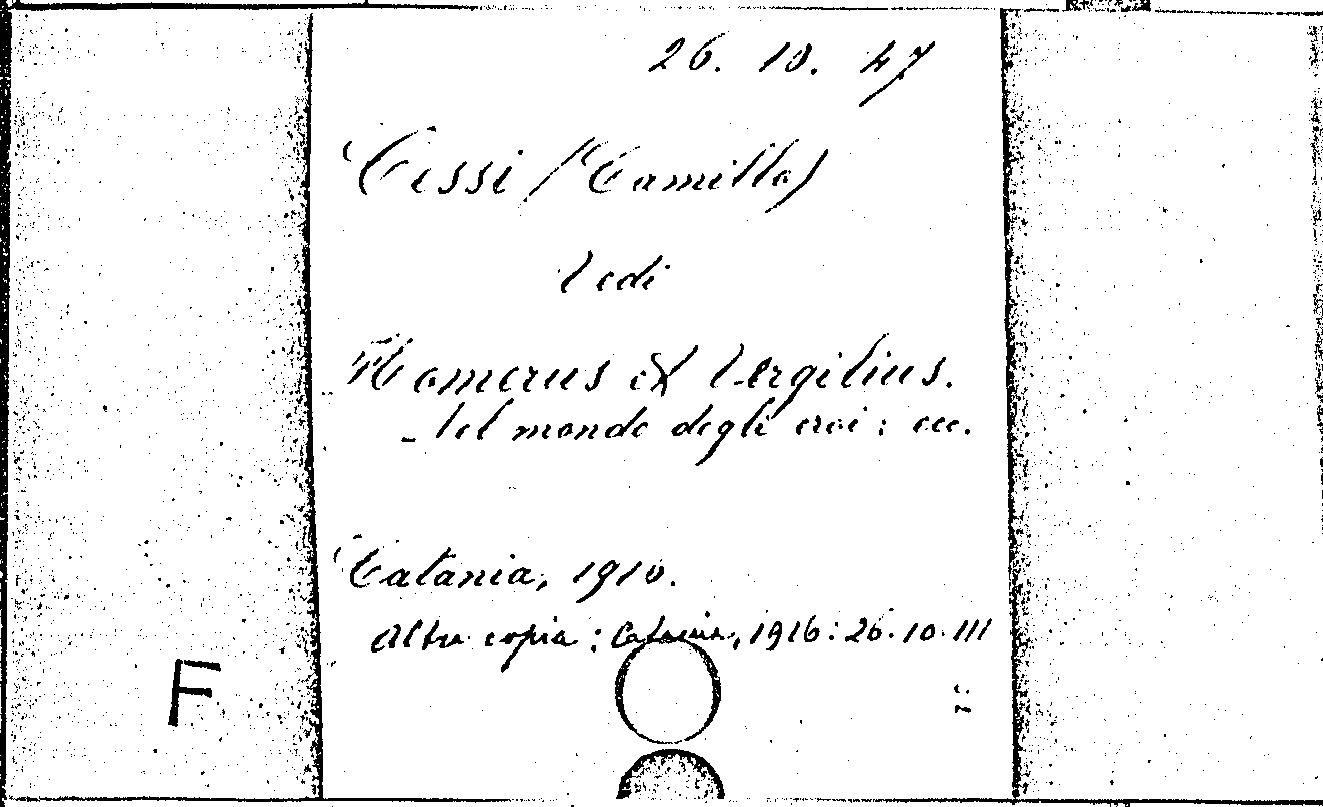 26. 10. 47
Cessi (Camillo)
Vedi
Homerus et Vergilius.
- Nel mondo degli eroi: ecc.
Catania, 1910.
Altra copia: Catania, 1916: 26.10.111
F